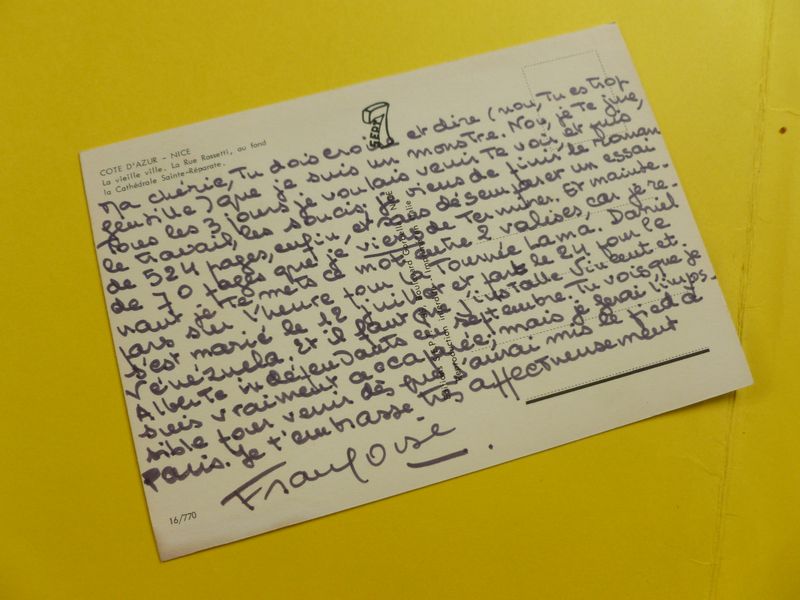 COTE D'AZUR - NICE
La vieille ville. La Rue Rossetti, au fond
la Cathédrale Sainte-Réparate.
SEPT 7
Ma chérie, Tu dois croire et dire (non, Tu es trop
gentille) que je suis un monstre. Non, je Te jure,
Tous les 3 jours je voulais venir Te voir, et puis
le travail, les soucis. je viens de finir le roman
de 524 pages, enfin, et sans désemparer un essai
de 70 pages que je viens de Terminer. Et mainte-
nant je Te mets ce mot entre 2 valises, car je re-
pars sur l'heure pour la Tournée Lama. Daniel
s'est marié le 12 juillet et part le 24 pour le
Vénézuela. Et il faut que j'installe Vincent et
Alberte indépendants en septembre. Tu vois que je
suis vraiment occupée, mais je ferai l'impos-
sible pour venir dès que j'aurai mis le pied à
Paris. Je t'embrasse très affectueusement
Françoise.
16/770